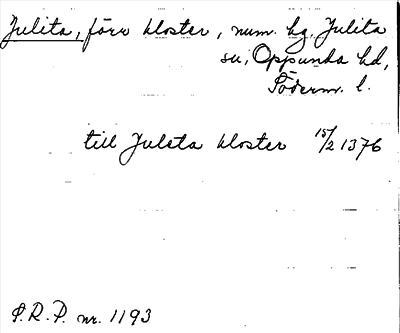 Julita, förr kloster, num. hg, Julita
sn, Oppunda hd,
Söderm. l.
till Juleta kloster 15/2 1376
S.R.P. nr. 1193